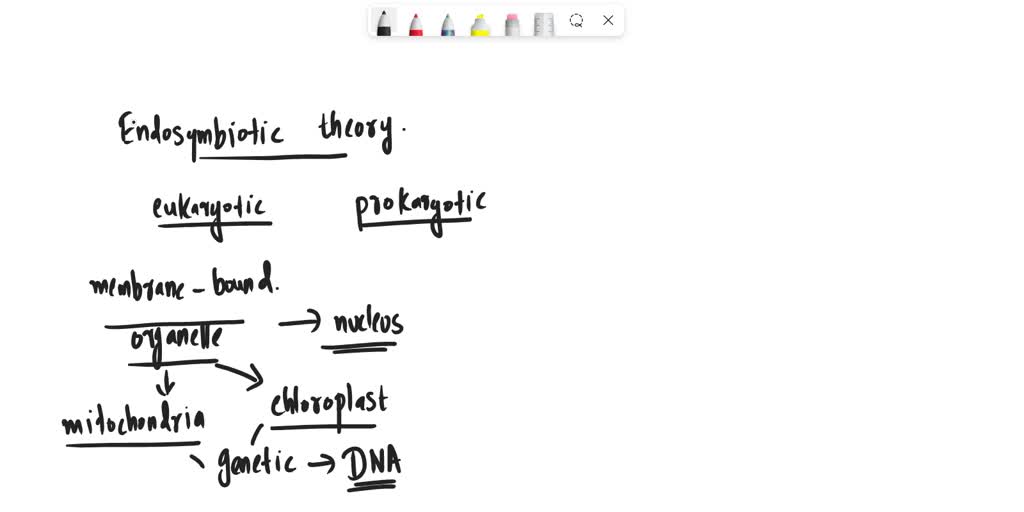 Endosymbiotic theory.
eukaryotic prokaryotic
membrane - bound.
organelle → nucleus
chloroplast
mitochondria
genetic → DNA